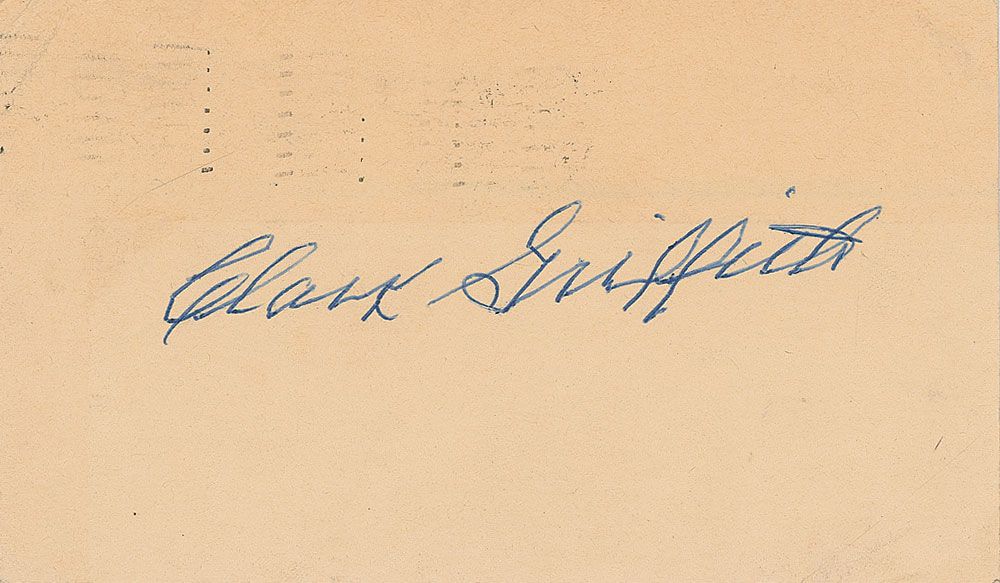 Clark Griffith